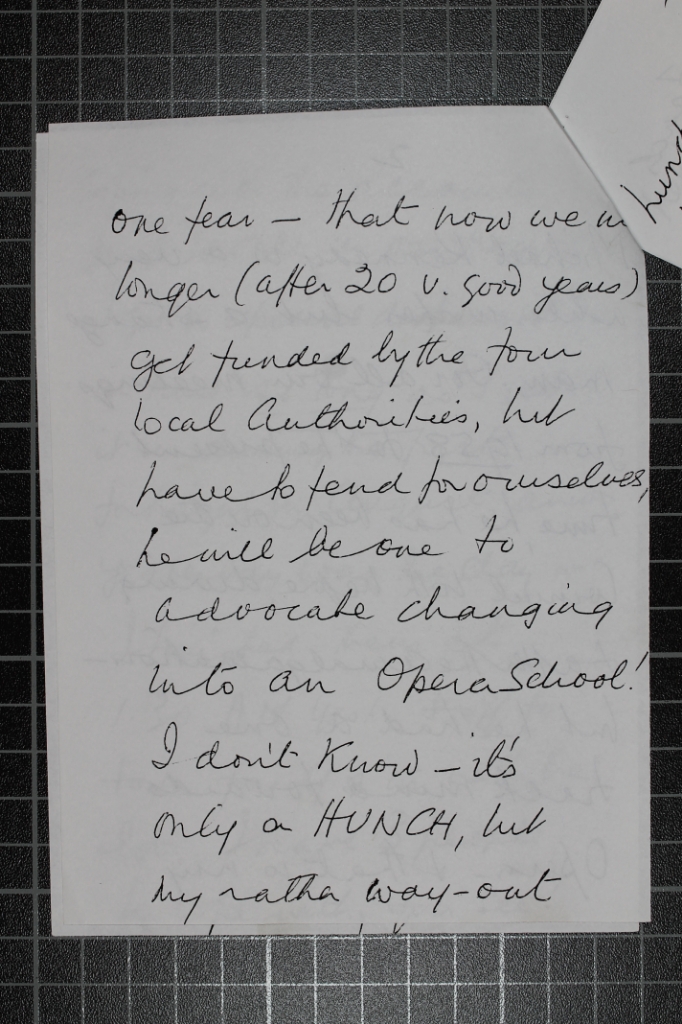 one fear – that now we no
longer (after 20 v. good years)
get funded by the four
local Authorities, but
have to fend for ourselves,
he will be one to
advocate changing
into an Opera School!
I don't know – it's
only a HUNCH, but
my rather way-out
hund